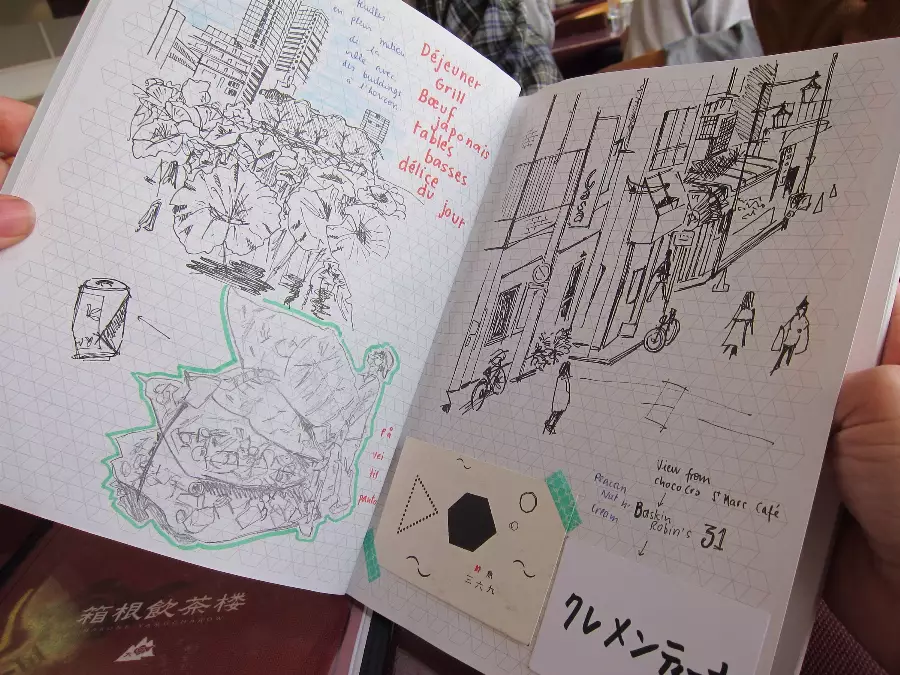 feuilles
en plein milieu
de la
ville avec
des buildings
à l'horizon.
Déjeuner
Grill
Bœuf
japonais
tables
basses
délice
du jour
på
vei
til
View from
chococro St Marc Café
Pecan
Nut n'
Cream
Baskin
Robin's 31
三六九
クレメンティーヌ
箱根飲茶楼